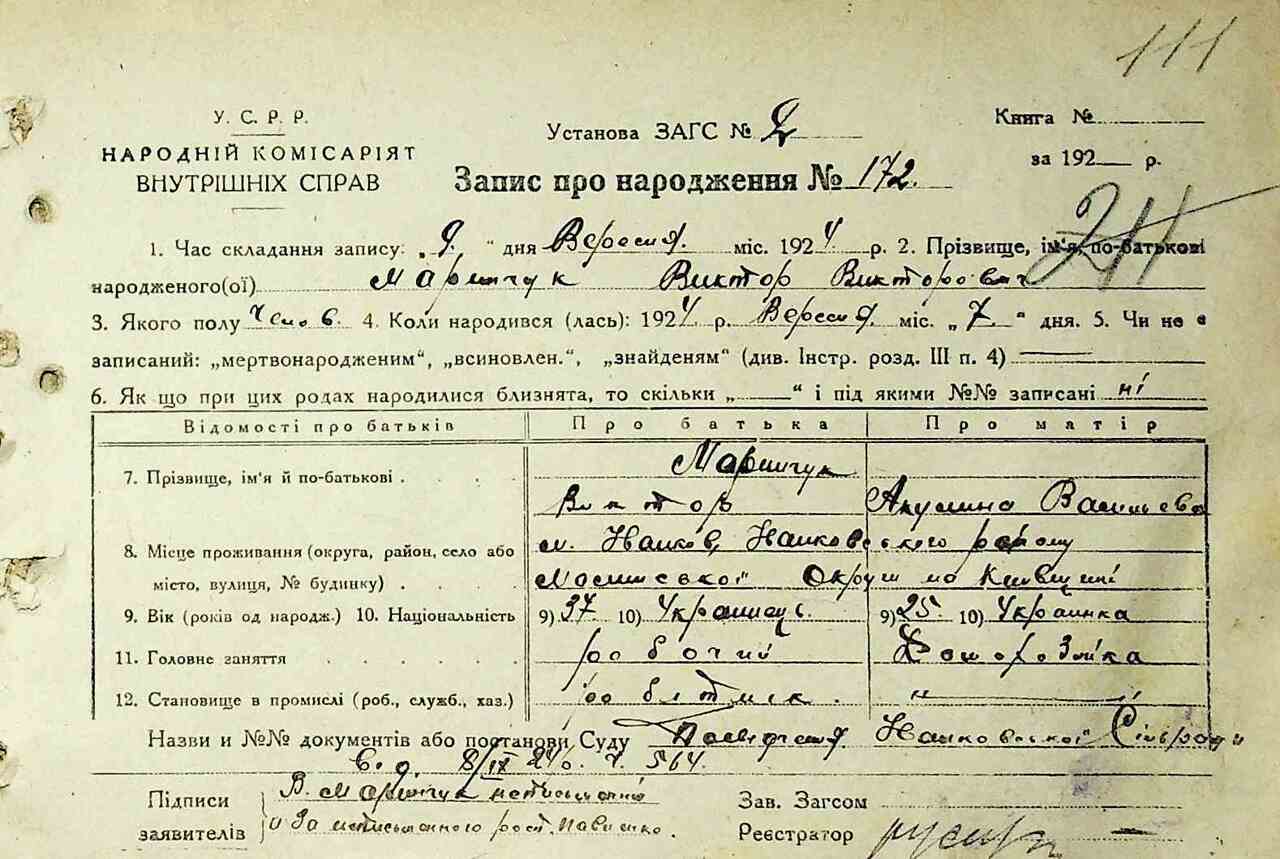 111
У. С. Р. Р.
НАРОДНІЙ КОМІСАРІЯТ
ВНУТРІШНІХ СПРАВ
Установа ЗАГС № 2
Книга №
за 192 р.
Запис про народження № 172.
211
1. Час складання запису: „9" дня Вересня міс. 1924 р. 2. Прізвище, ім'я, по-батькові
народженого(ої) Маринчук Виктор Викторович
3. Якого полу Челов. 4. Коли народився (лась): 1924 р. Вересня міс. „7" дня. 5. Чи не є
записаний: „мертвонародженим", „всиновлен.", „знайденям" (див. Інстр. розд. III п. 4)
6. Як що при цих родах народилися близнята, то скільки „ " і під якими №№ записані ні
Відомості про батьків Про батька Про матір
7. Прізвище, ім'я й по-батькові . . . . Маринчук
Виктор Акулина Васильева
8. Місце проживання (округа, район, село або м. Іванків, району
місто, вулиця, № будинку) . . . . Округи на Київщині
9. Вік (років од народж.) 10. Національність 9) 37 10) Украинець. 9) 25 10) Украинка
11. Головне заняття . . . . . . робочий
12. Становище в промислі (роб., служб., хаз.) робітник. "
Назви и №№ документів або постанови Суду Посвідчення Сільради
8/IX 24 р. ч. 564.
Підписи В. Маринчук неписьменний
заявителів за неписьменного росп.
Зав. Загсом
Реєстратор